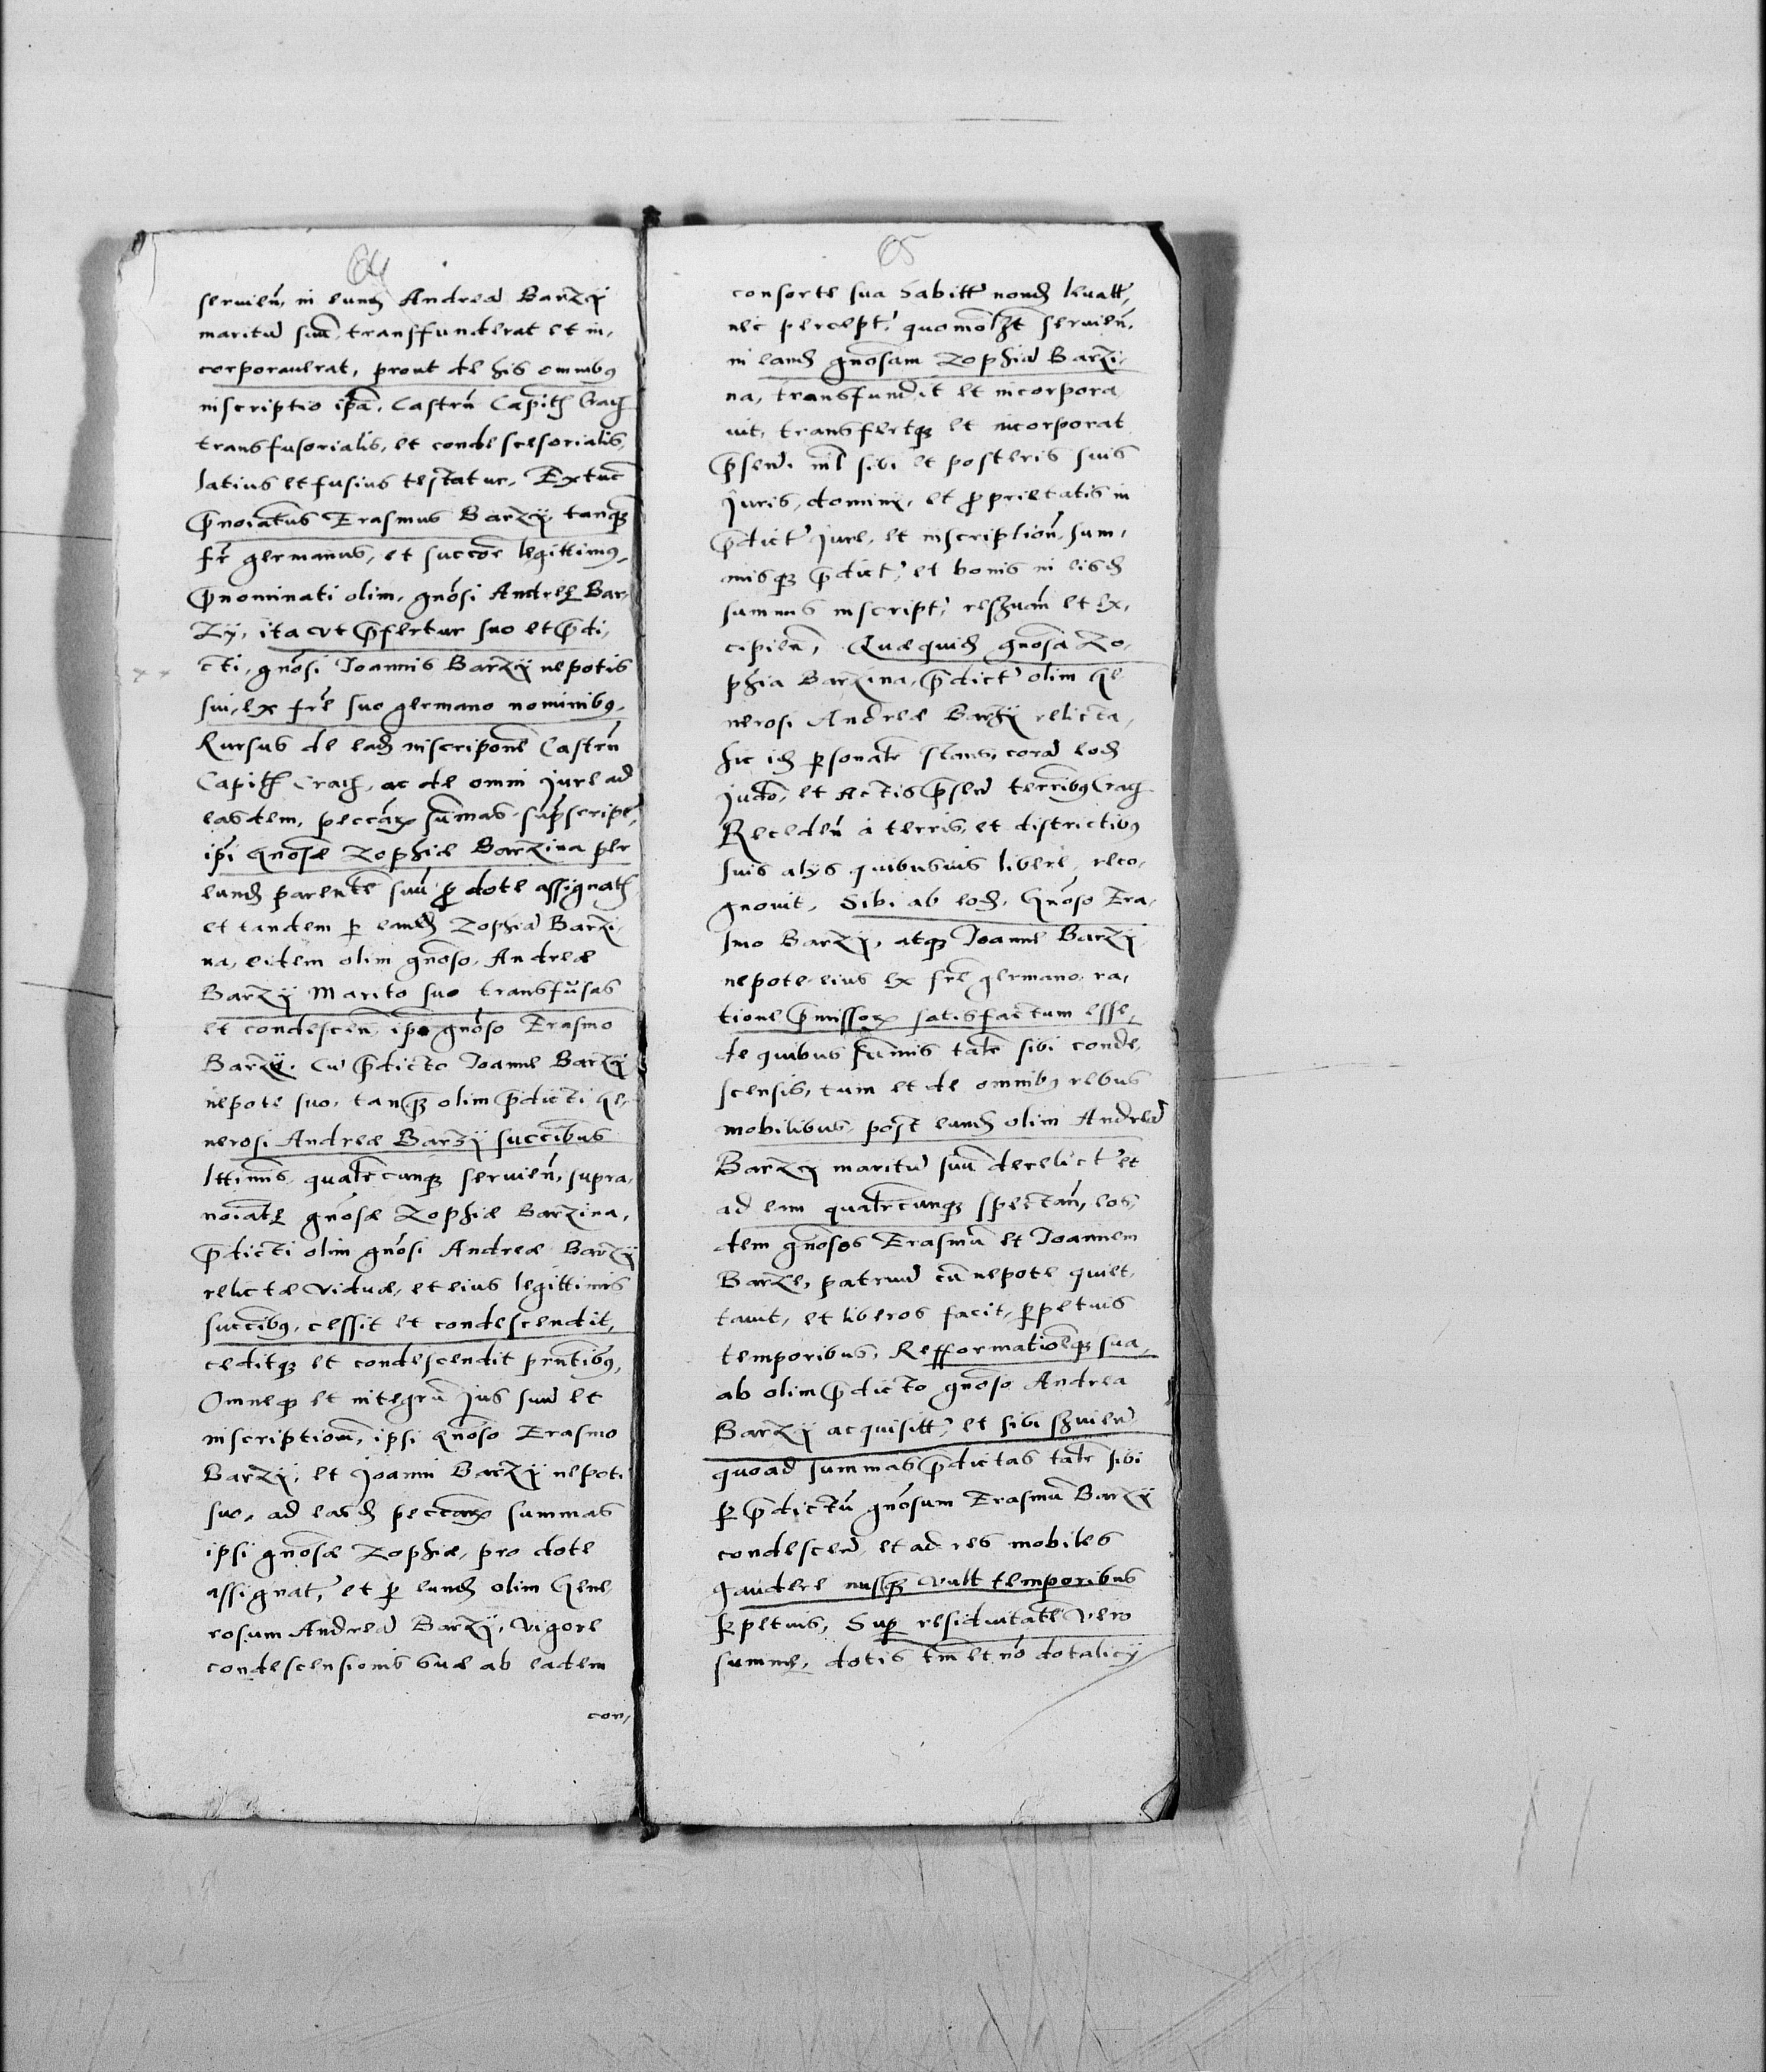 64
seruien, in eund Andrea Barzy
maritu suu, transffunderat et in,
corporauerat, prout de his omnibus
inscriptio ipa, Castrn Capitl Crac
transfusorialis, et condescesorialis,
latius et fusius testatur, Extuc
pnoiatus Erasmus Barzy, tanq
fr germanus, et succor legittimus,
pnominati olim, gnosi Andree Bar,
Zy, ita vt pfertur suo et pdi,
cti, gnosi Joannis Barzy nepotis
sui, ex fre suo germano nominibus,
Rursus de ead inscripone Castrn
Capitl Crac, ac de omni jure ad
easdem, peccar sumas supscript,
ipi gnosæ Zophiæ Barzina per
eund parente suu p dote assignat
et tandem p eand Zophia Barzi,
na, eidem olim gnoso, Andreæ
Barzy Marito suo transfusas
et condescen, ipo gnoso Erasmo
Barzy, Cu pdicto Joanne Barzy
nepote suo, tanq olim pdicti ge,
nerosi Andreæ Barzy succibus
lttimis, qualrcunq seruien, supra,
noiate gnosæ Zophiæ Barzina,
pdicti olim gnosi Andreæ Barzy
relictæ viduæ, et eius legittimis
succibus, cessit et condescendit,
ceditq et condescendit prntibus,
Omneq et integru jus suu et
inscriptiom, ipsi gnoso Erasmo
Barzy, et Joanni Barzy nepoti
suo, ad easd peccar summas
ipsi gnosæ Zophiæ, pro dote
assignat, et p eund olim Gene
rosum Andrea Barzy, vigore
condescensionis suæ ab eadem
con,
65
consorte sua habitt nond leuatt,
nec percept, quomolzt seruien,
in eand gnosam Zophia Barzi,
na, transfundit et incorpora
uit, transfertq et incorporat
psend, nil sibi et posteris suis
Juris, dominy, et pprietatis in
pdict jure, et inscription, sum,
misq pdict, et bonis in eisd
summis inscript, reseruan et ex,
cipien, Quæ quid gnosa Zo,
phia Barzina, pdict olim ge
nerosi Andreæ Barzy relicta,
hic id psonalr stans, cora eod
judo, et Actis psend terribus Crac
Receden a terris, et districtibus
suis alys quibusuis libere, reco,
gnouit, Sibi ab eod, Gnoso Era,
smo Barzy, atq Joanne Barzy
nepote eius ex fre germano, ra,
tione pmissor satisfactum esse,
de quibus sumis talr sibi conde,
scensis, tum et de omnibus rebus
mobilibus, post eund olim Andrea
Barzy maritu suu derelict et
ad eam qualrcunq spectan, eos,
dem gnosos Erasmu et Joannem
Barze, patruu cu nepote quiet,
tauit, et liberos facit, ppetuis
temporibus, Refformationeq sua,
ab olim pdicto gnoso Andrea
Barzy acquisitt, et sibi seruien
quoad summas pdictas talr sibi
p pdictu gnosum Erasmu Barzy
condescen, et ad res mobiles
gaudere nusq vult temporibus
ppetuis, Sup residuitate vero
summe, dotis tm et no dotalicy